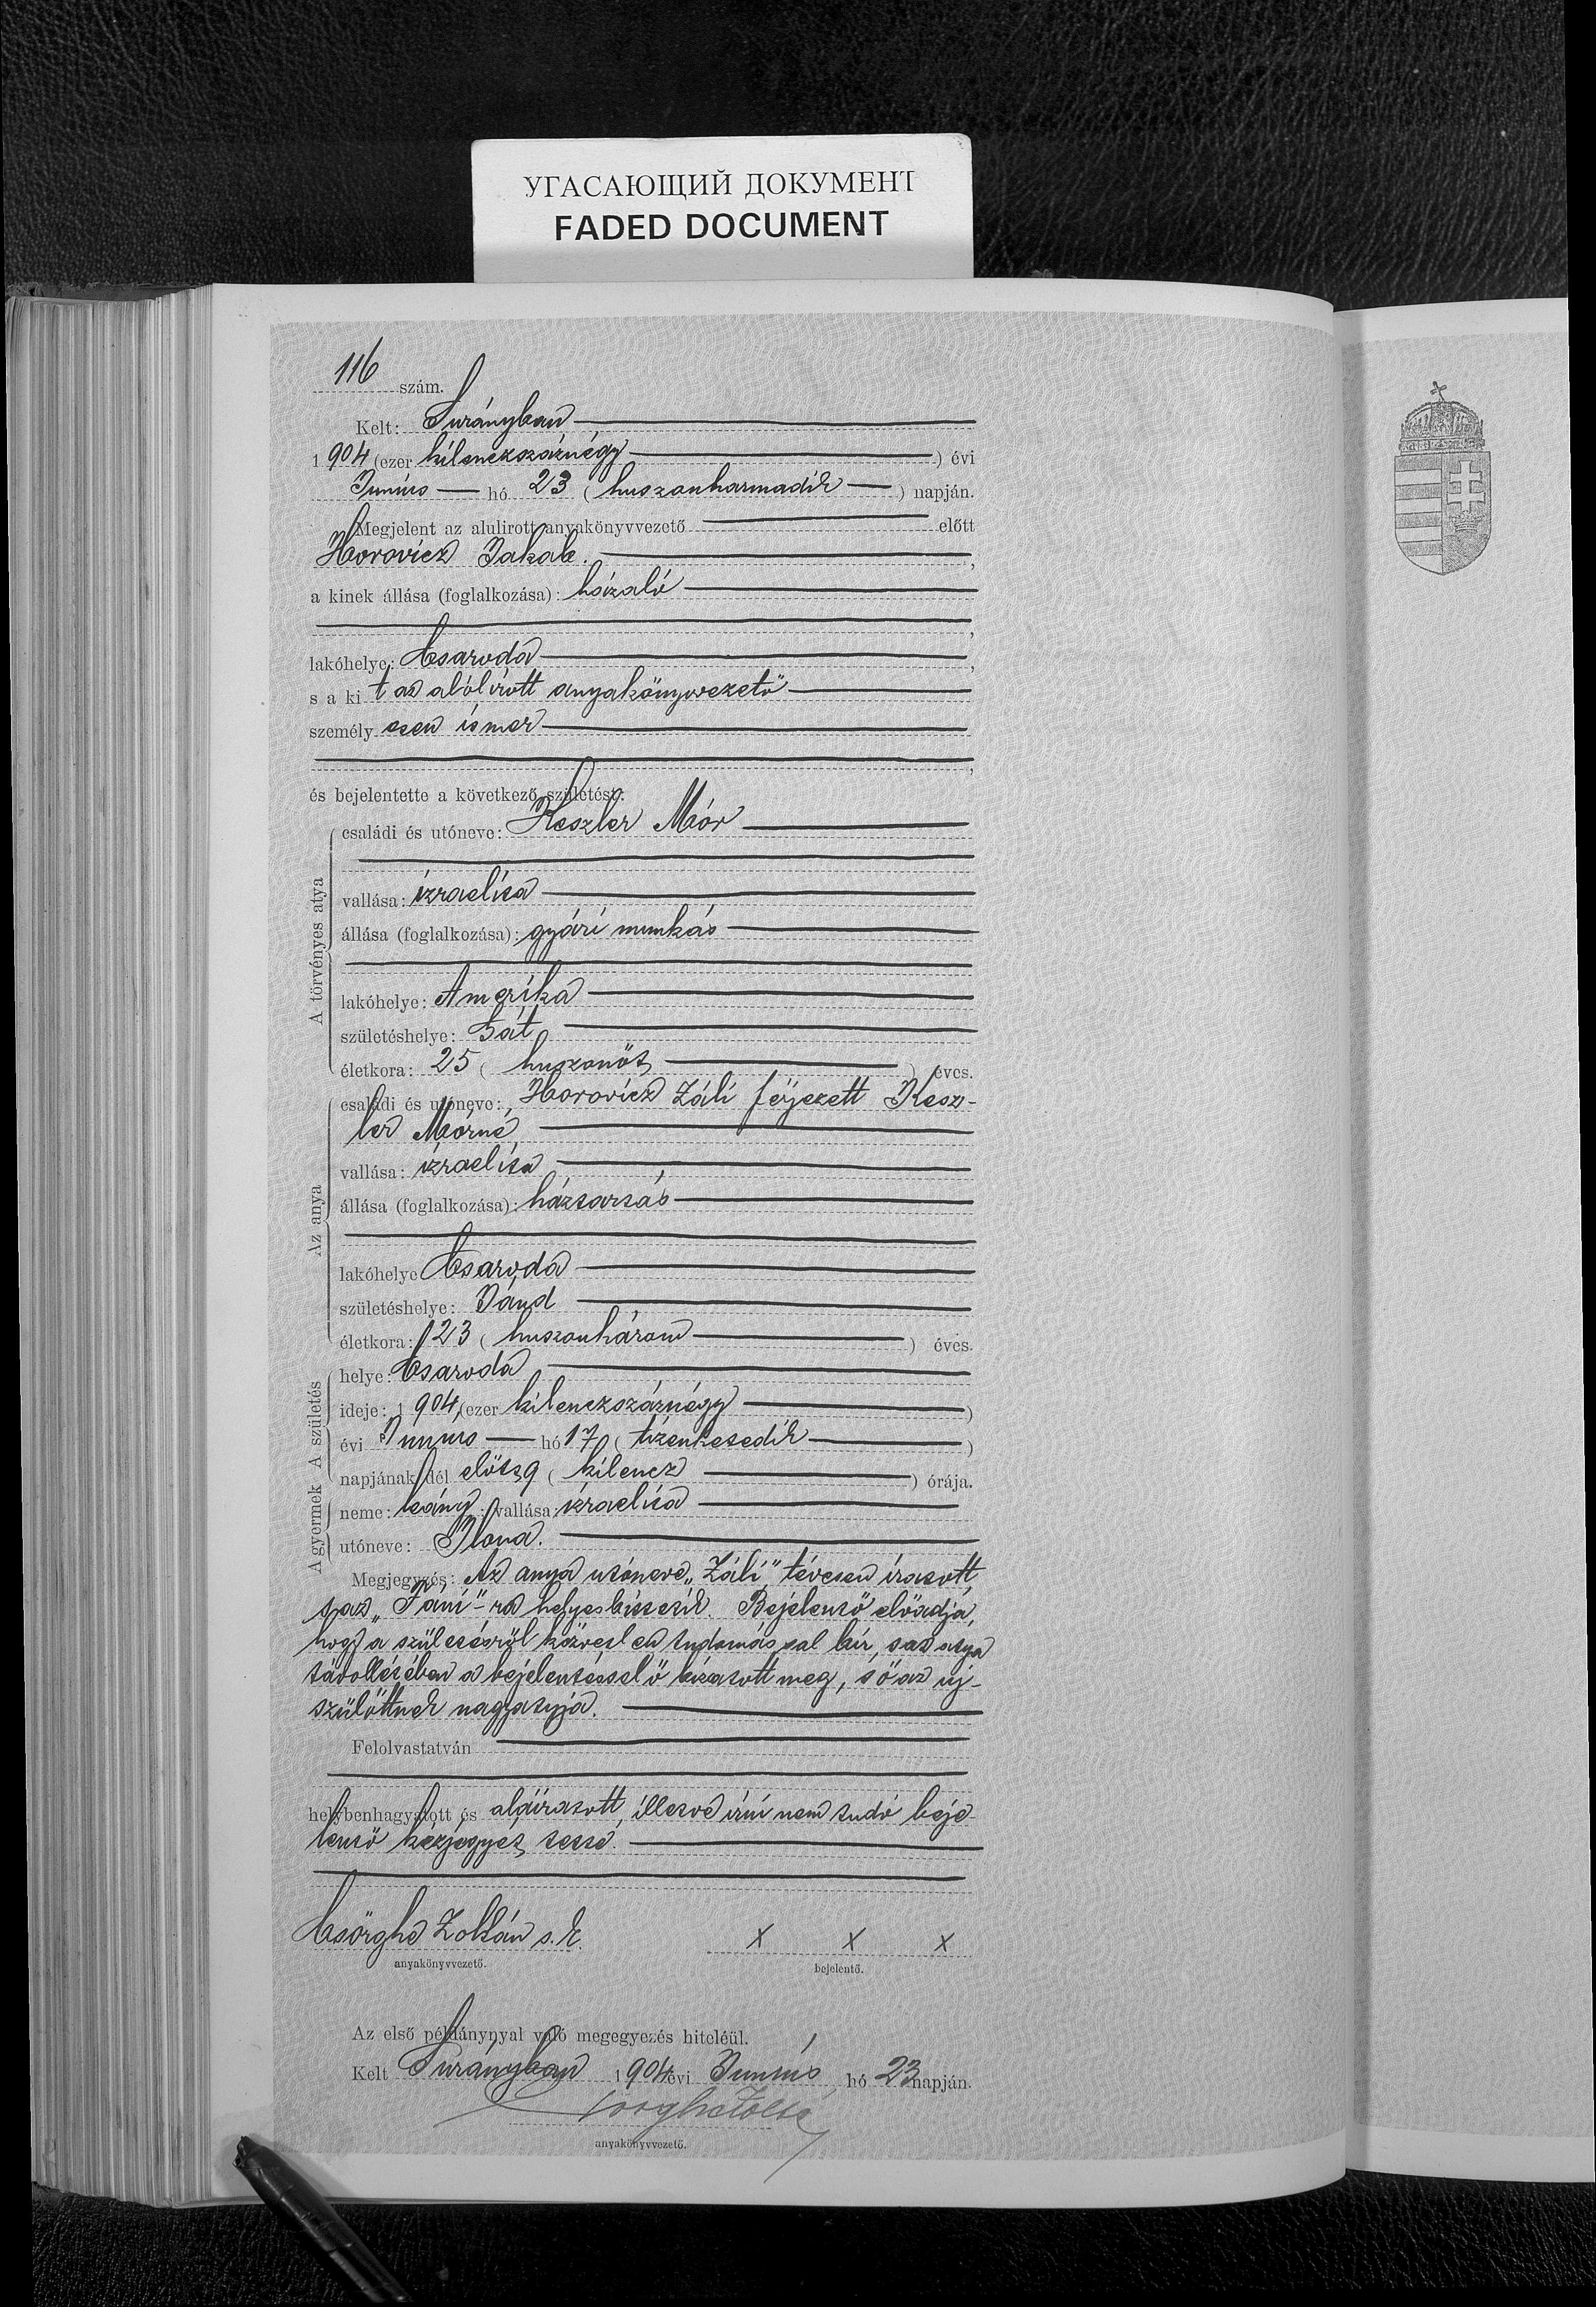 УГАСАЮЩИЙ ДОКУМЕНТ
FADED DOCUMENT
116 szám.
Kelt: Surányban
1904 (ezer kilenczszáznégy ) évi
Junius hó 23 ( huszonharmadik ) napján.
Megjelent az alulirott anyakönyvvezető előtt
Horovicz Jakab.,
a kinek állása (foglalkozása): házaló
,
lakóhelye: Csaroda ,
s a kit az alólirott anyakönyvvezető
személyesen ismer
,
és bejelentette a következő születést:
A törvényes atya
családi és utóneve: Keszler Mór
vallása: izraelita
állása (foglalkozása): gyári munkás
lakóhelye: Amerika
születéshelye:
életkora: 25 ( huszonöt ) éves.
Az anya
családi és utóneve: Horovicz Záli férjezett Kesz-
ler Mórné
vallása: izraelita
állása (foglalkozása): háztartás
lakóhelye Csaroda
születéshelye: Jánd
életkora: 23 ( huszonhárom ) éves.
A születés
helye: Csaroda
ideje: 1904 (ezer kilenczszáznégy )
évi Junius hó 17 ( tizenhetedik )
napjának dél előtt 9 ( kilencz ) órája.
A gyermek
neme: leány; vallása: izraelita
utóneve: Ilona.
Megjegyzés: Az anya utóneve „Záli” tévesen iratott,
s az „Fáni”-ra helyesbittetik. Bejelentő előadja,
hogy a születésről közvetlen tudomással bir, s az atya
távollétében a bejelentéssel ő bizatott meg, s ő az uj-
szülöttnek nagyatyja.
Felolvastatván
helybenhagyatott és aláiratott, illetve irni nem tudó beje-
lentő kézjegyét tette.
Csörghe Zoltán s. k. x x x
anyakönyvvezető. bejelentő.
Az első példánynyal való megegyezés hiteléül.
Kelt Surányban 1904 évi Junius hó 23 napján.
anyakönyvvezető.